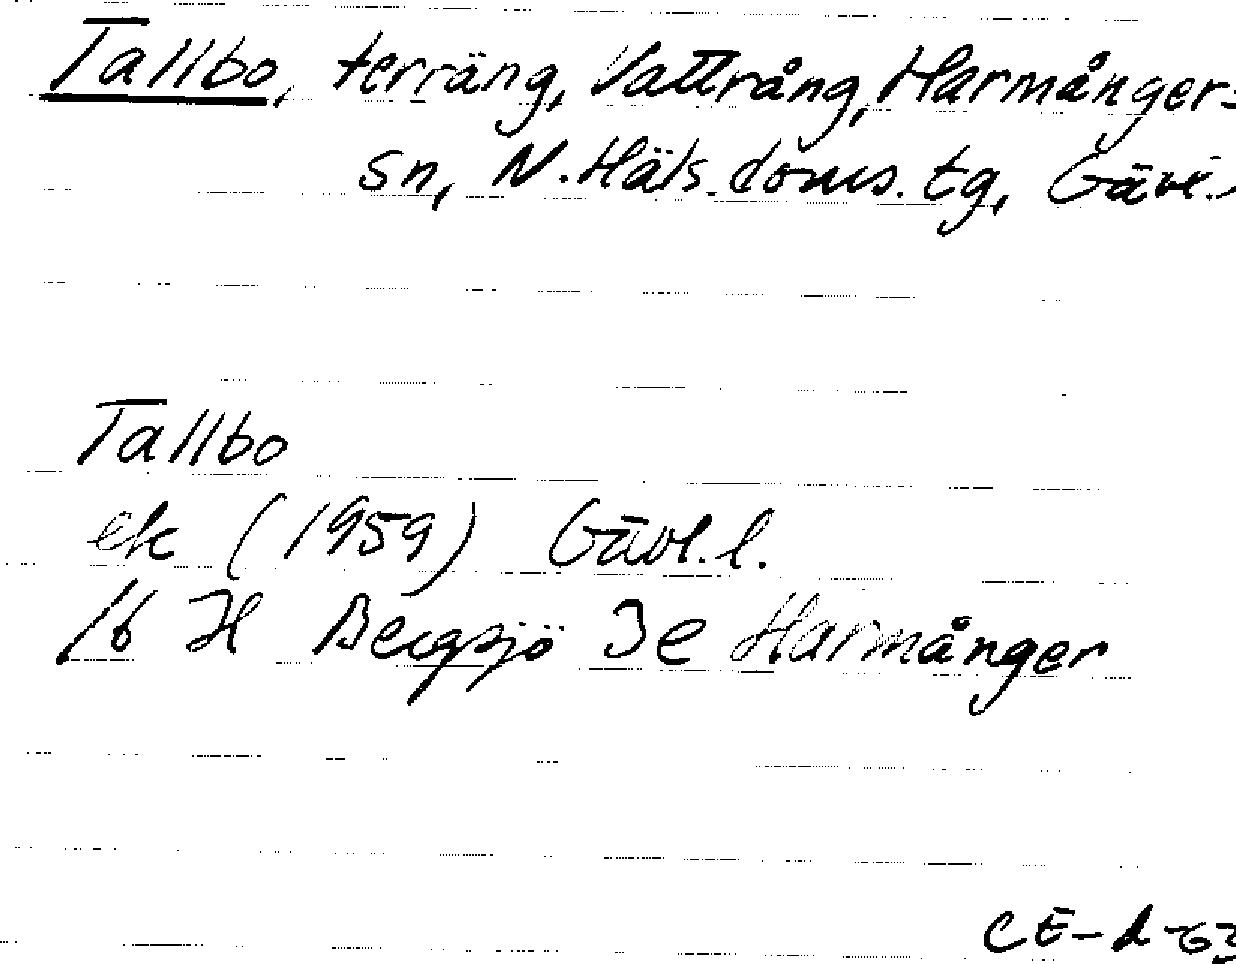 Tallbo, terräng, Vattrång, Harmånger-
sn, N. Häls. doms. tg, Gävl.
Tallbo
ek (1959) Gävl. l.
16 H Bergsjö 3e Harmånger
CE-d-63